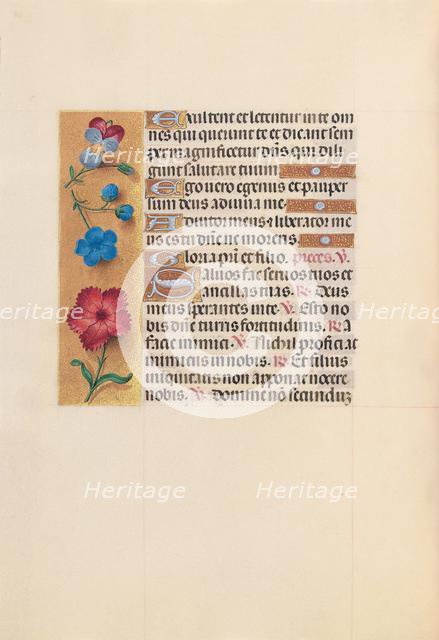 Exultent et letentur in te om
nes qui querunt te et dicant sem
per magnificetur dn̄s qui dili
gunt salutare tuum
Ego vero egenus et pauper
sum deus adiuva me
Adiutor meus et liberator me
us es tu dn̄e ne moreris
Gloria pr̄i et filio. preces. V.
Salvos fac servos tuos et
ancillas tuas. R. Deus
meus sperantes in te. V. Esto no
bis dn̄e turris fortitudinis. R. A
facie inimici. V. Nichil proficiat
inimicus in nobis. R. Et filius
iniquitatis non apponat nocere
nobis. V. Domine nō secunduȝ
Heritage Heritage Heritage
Heritage Heritage Heritage
Heritage Heritage